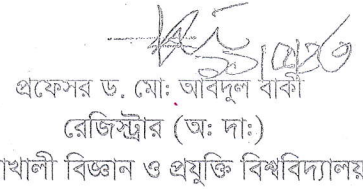 প্রফেসর ড. মো: আবদুল বাকী
রেজিস্ট্রার (অ: দা:)
াখালী বিজ্ঞান ও প্রযুক্তি বিশ্ববিদ্যালয়